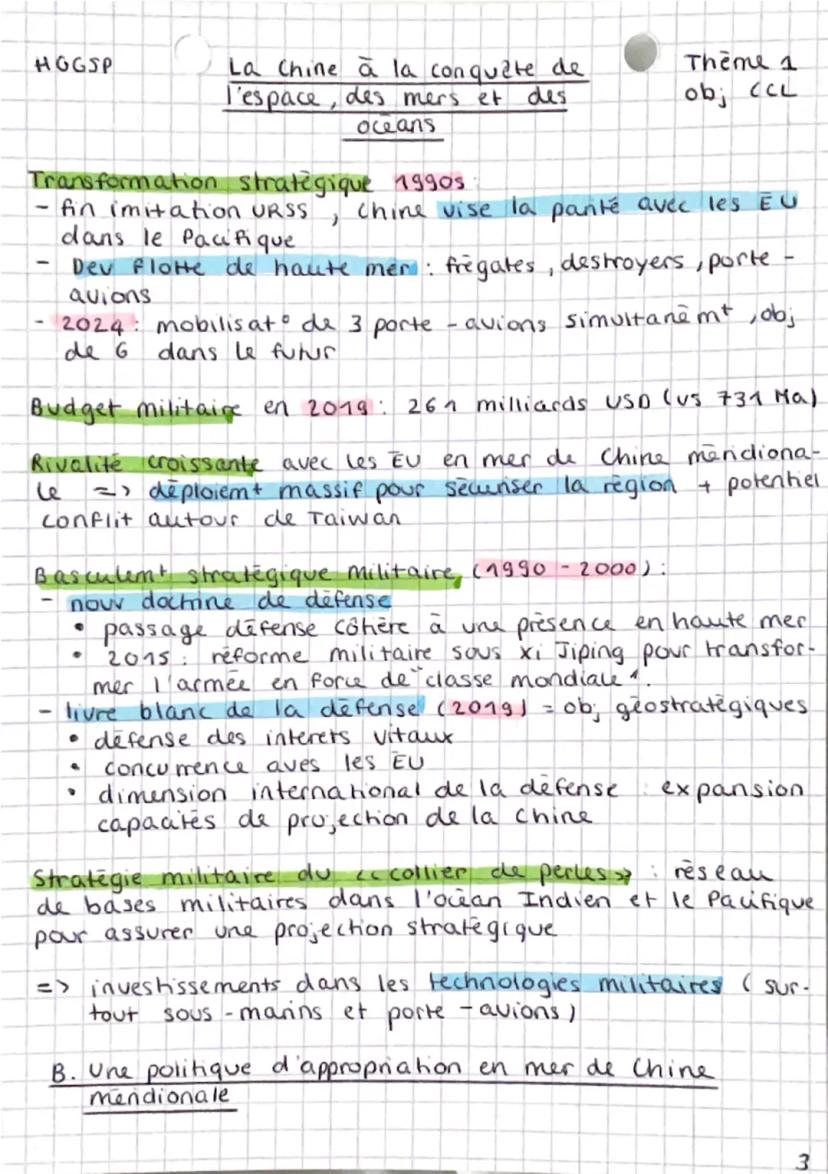 HGGSP
La Chine à la conquête de
l'espace, des mers et des
océans
Thème 1
obj CCL
Transformation stratégique 1990s :
- fin imitation URSS, Chine vise la parité avec les ÉU
dans le Pacifique
- Dev flotte de haute mer : frégates, destroyers, porte-
avions
- 2024 : mobilisat° de 3 porte-avions simultanémt, obj
de 6 dans le futur
Budget militaire en 2019 : 261 milliards USD (vs 731 Ma)
Rivalité croissante avec les ÉU en mer de Chine méridiona-
le => déploiemt massif pour sécuriser la région + potentiel
conflit autour de Taiwan
Basculemt stratégique militaire (1990 - 2000) :
- nouv doctrine de défense
• passage défense côtière à une présence en haute mer
• 2015 : réforme militaire sous Xi Jiping pour transfor-
mer l'armée en force de "classe mondiale".
- livre blanc de la défense (2019) = obj géostratégiques
• défense des interets vitaux
• concurrence aves les ÉU
• dimension international de la défense : expansion
capacités de projection de la Chine
Stratégie militaire du << collier de perles >> : réseau
de bases militaires dans l'océan Indien et le Pacifique
pour assurer une projection stratégique
=> investissements dans les technologies militaires (sur-
tout sous-marins et porte-avions)
B. Une politique d'appropriation en mer de Chine
méridionale
3